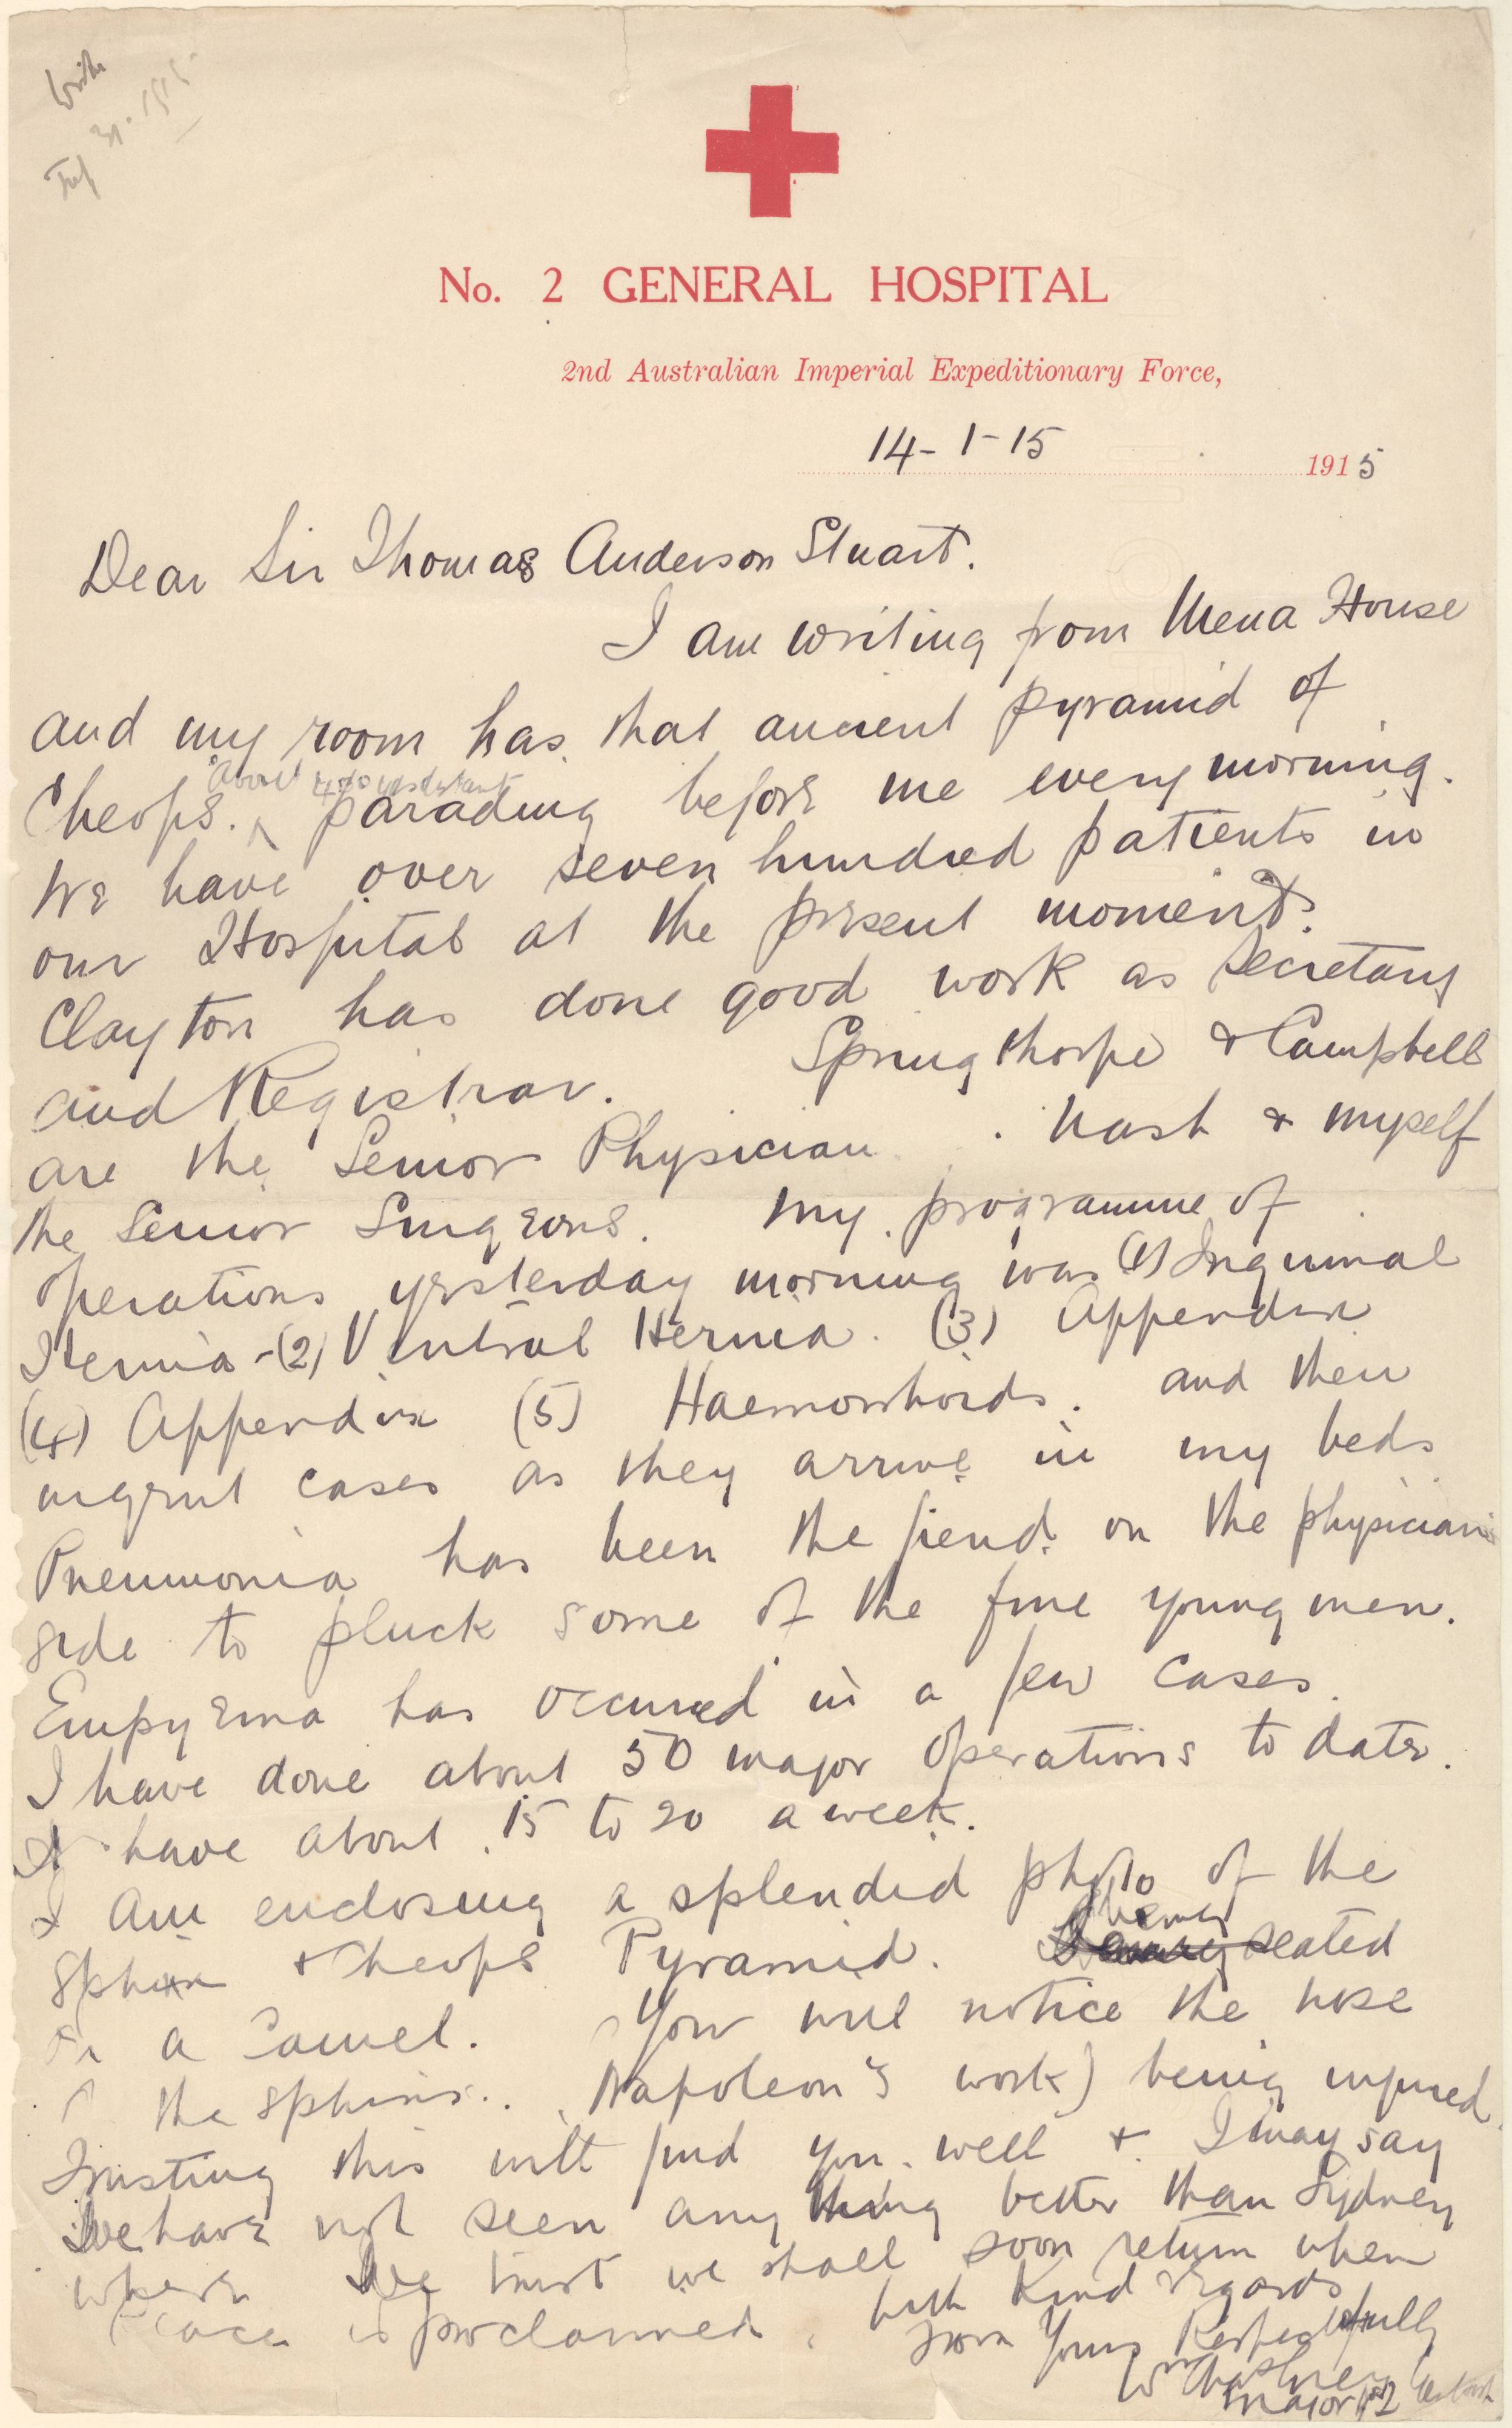 No. 2 GENERAL HOSPITAL
2nd Australian Imperial Expeditionary Force,
14-1-15 1915
Dear Sir Thomas Anderson Stuart.
I am writing from Mena House
and my room has that ancient pyramid of
about 400 yds distant
Cheops. parading before me every morning.
We have over seven hundred patients in
our Hospital at the present moment.
Clayton has done good work as Secretary
and Registrar. Springthorpe & Campbell
are the Senior Physician. Nash & myself
the Senior Surgeons. My programme of
operations yesterday morning was (1) Inguinal
Hernia - (2) Ventral Hernia. (3) Appendix
(4) Appendix (5) Haemorrhoids. and then
urgent cases as they arrive in my beds
Pneumonia has been the fiend on the physician
side to pluck some of the fine young men.
Empyema has occurred in a few cases.
I have done about 50 major operations to date.
I have about 15 to 20 a week.
I am enclosing a splendid photo of the
Sphinx & Cheops Pyramid. seated
on a Camel. You will notice the nose
of the sphinx. Napoleon's work) being injured.
Trusting this will find you well & I may say
we have not seen anything better than Sydney
where we trust we shall soon return when
Peace is proclaimed. With Kind regards
from Yours Respectfully
Major